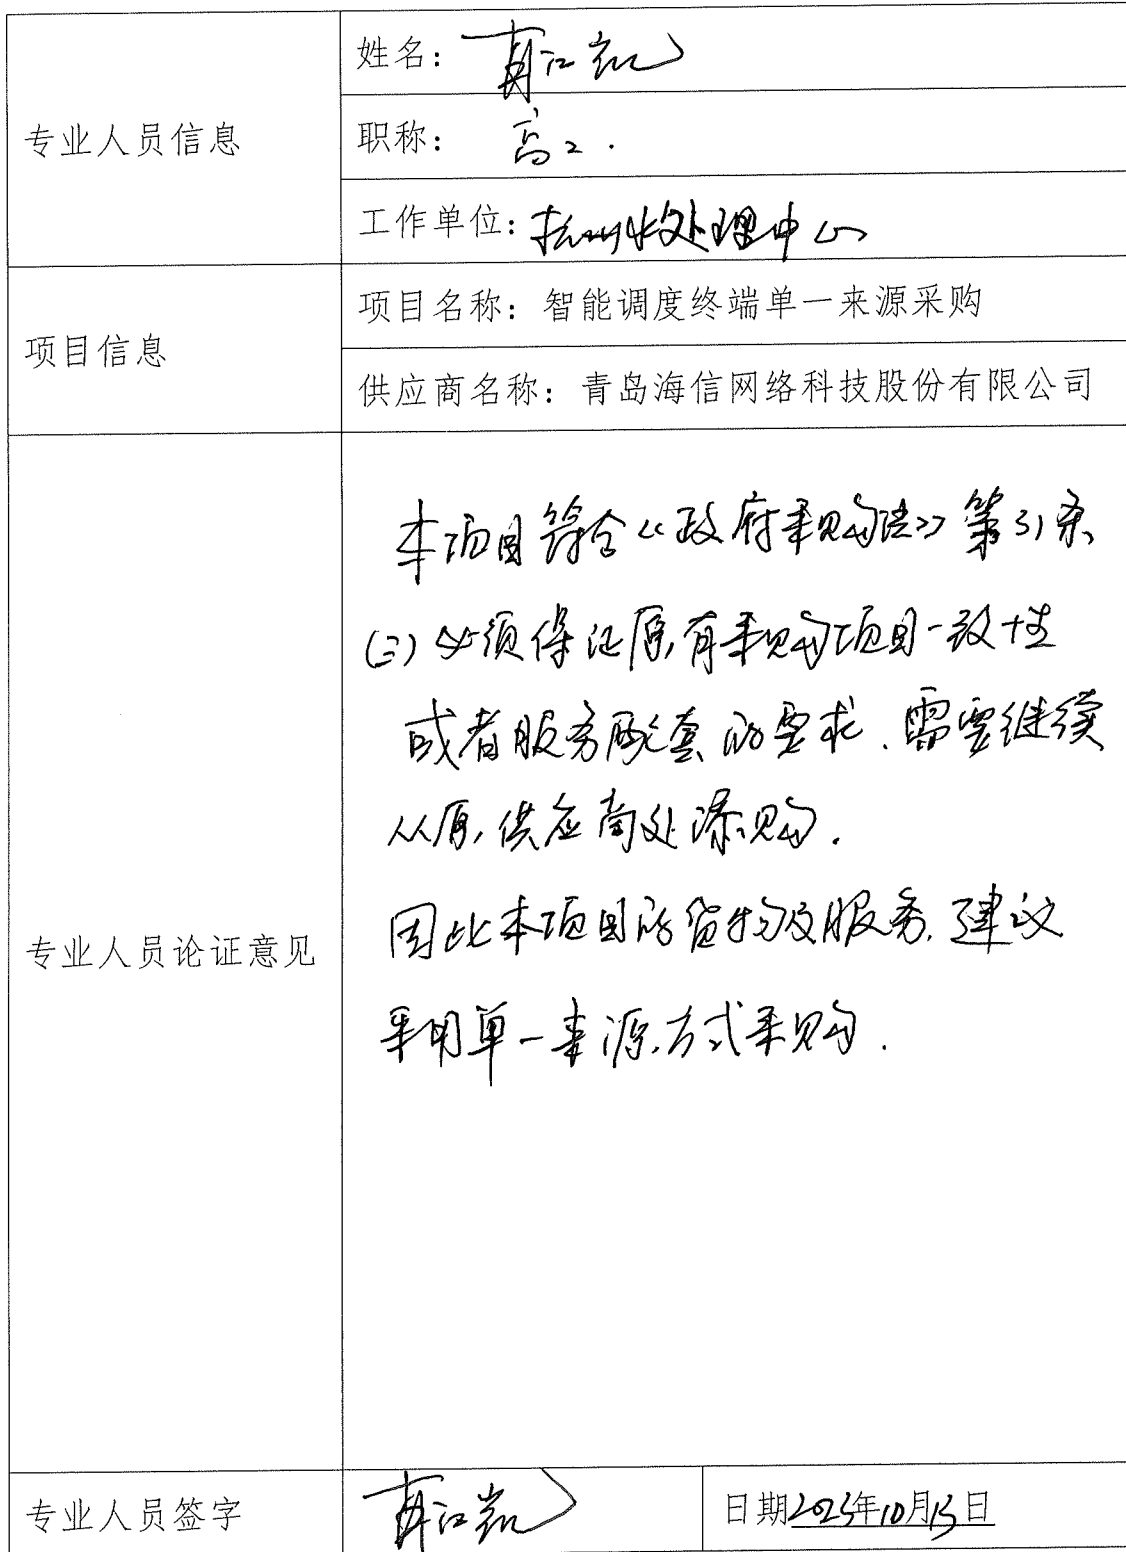 专业人员信息
姓名：
职称：高工.
工作单位：杭州水处理中心
项目信息
项目名称：智能调度终端单一来源采购
供应商名称：青岛海信网络科技股份有限公司
专业人员论证意见
本项目符合《政府采购法》第31条
(三)必须保证原有采购项目一致性
或者服务配套的要求、需要继续
从原供应商处添购.
因此本项目的货物及服务,建议
采用单一来源方式采购.
专业人员签字
日期2023年10月13日